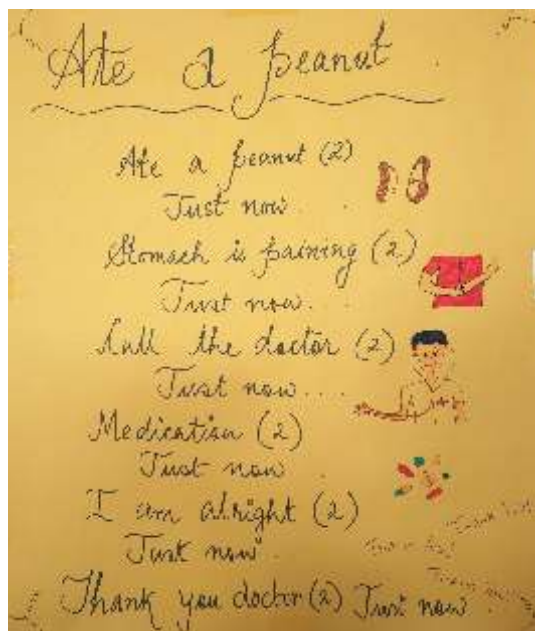 Ate a peanut
Ate a peanut (2)
Just now...
Stomach is paining (2)
Just now...
Call the doctor (2)
Just now....
Medication (2)
Just now
I am alright (2)
Just now.
Thank you doctor (2) Just now